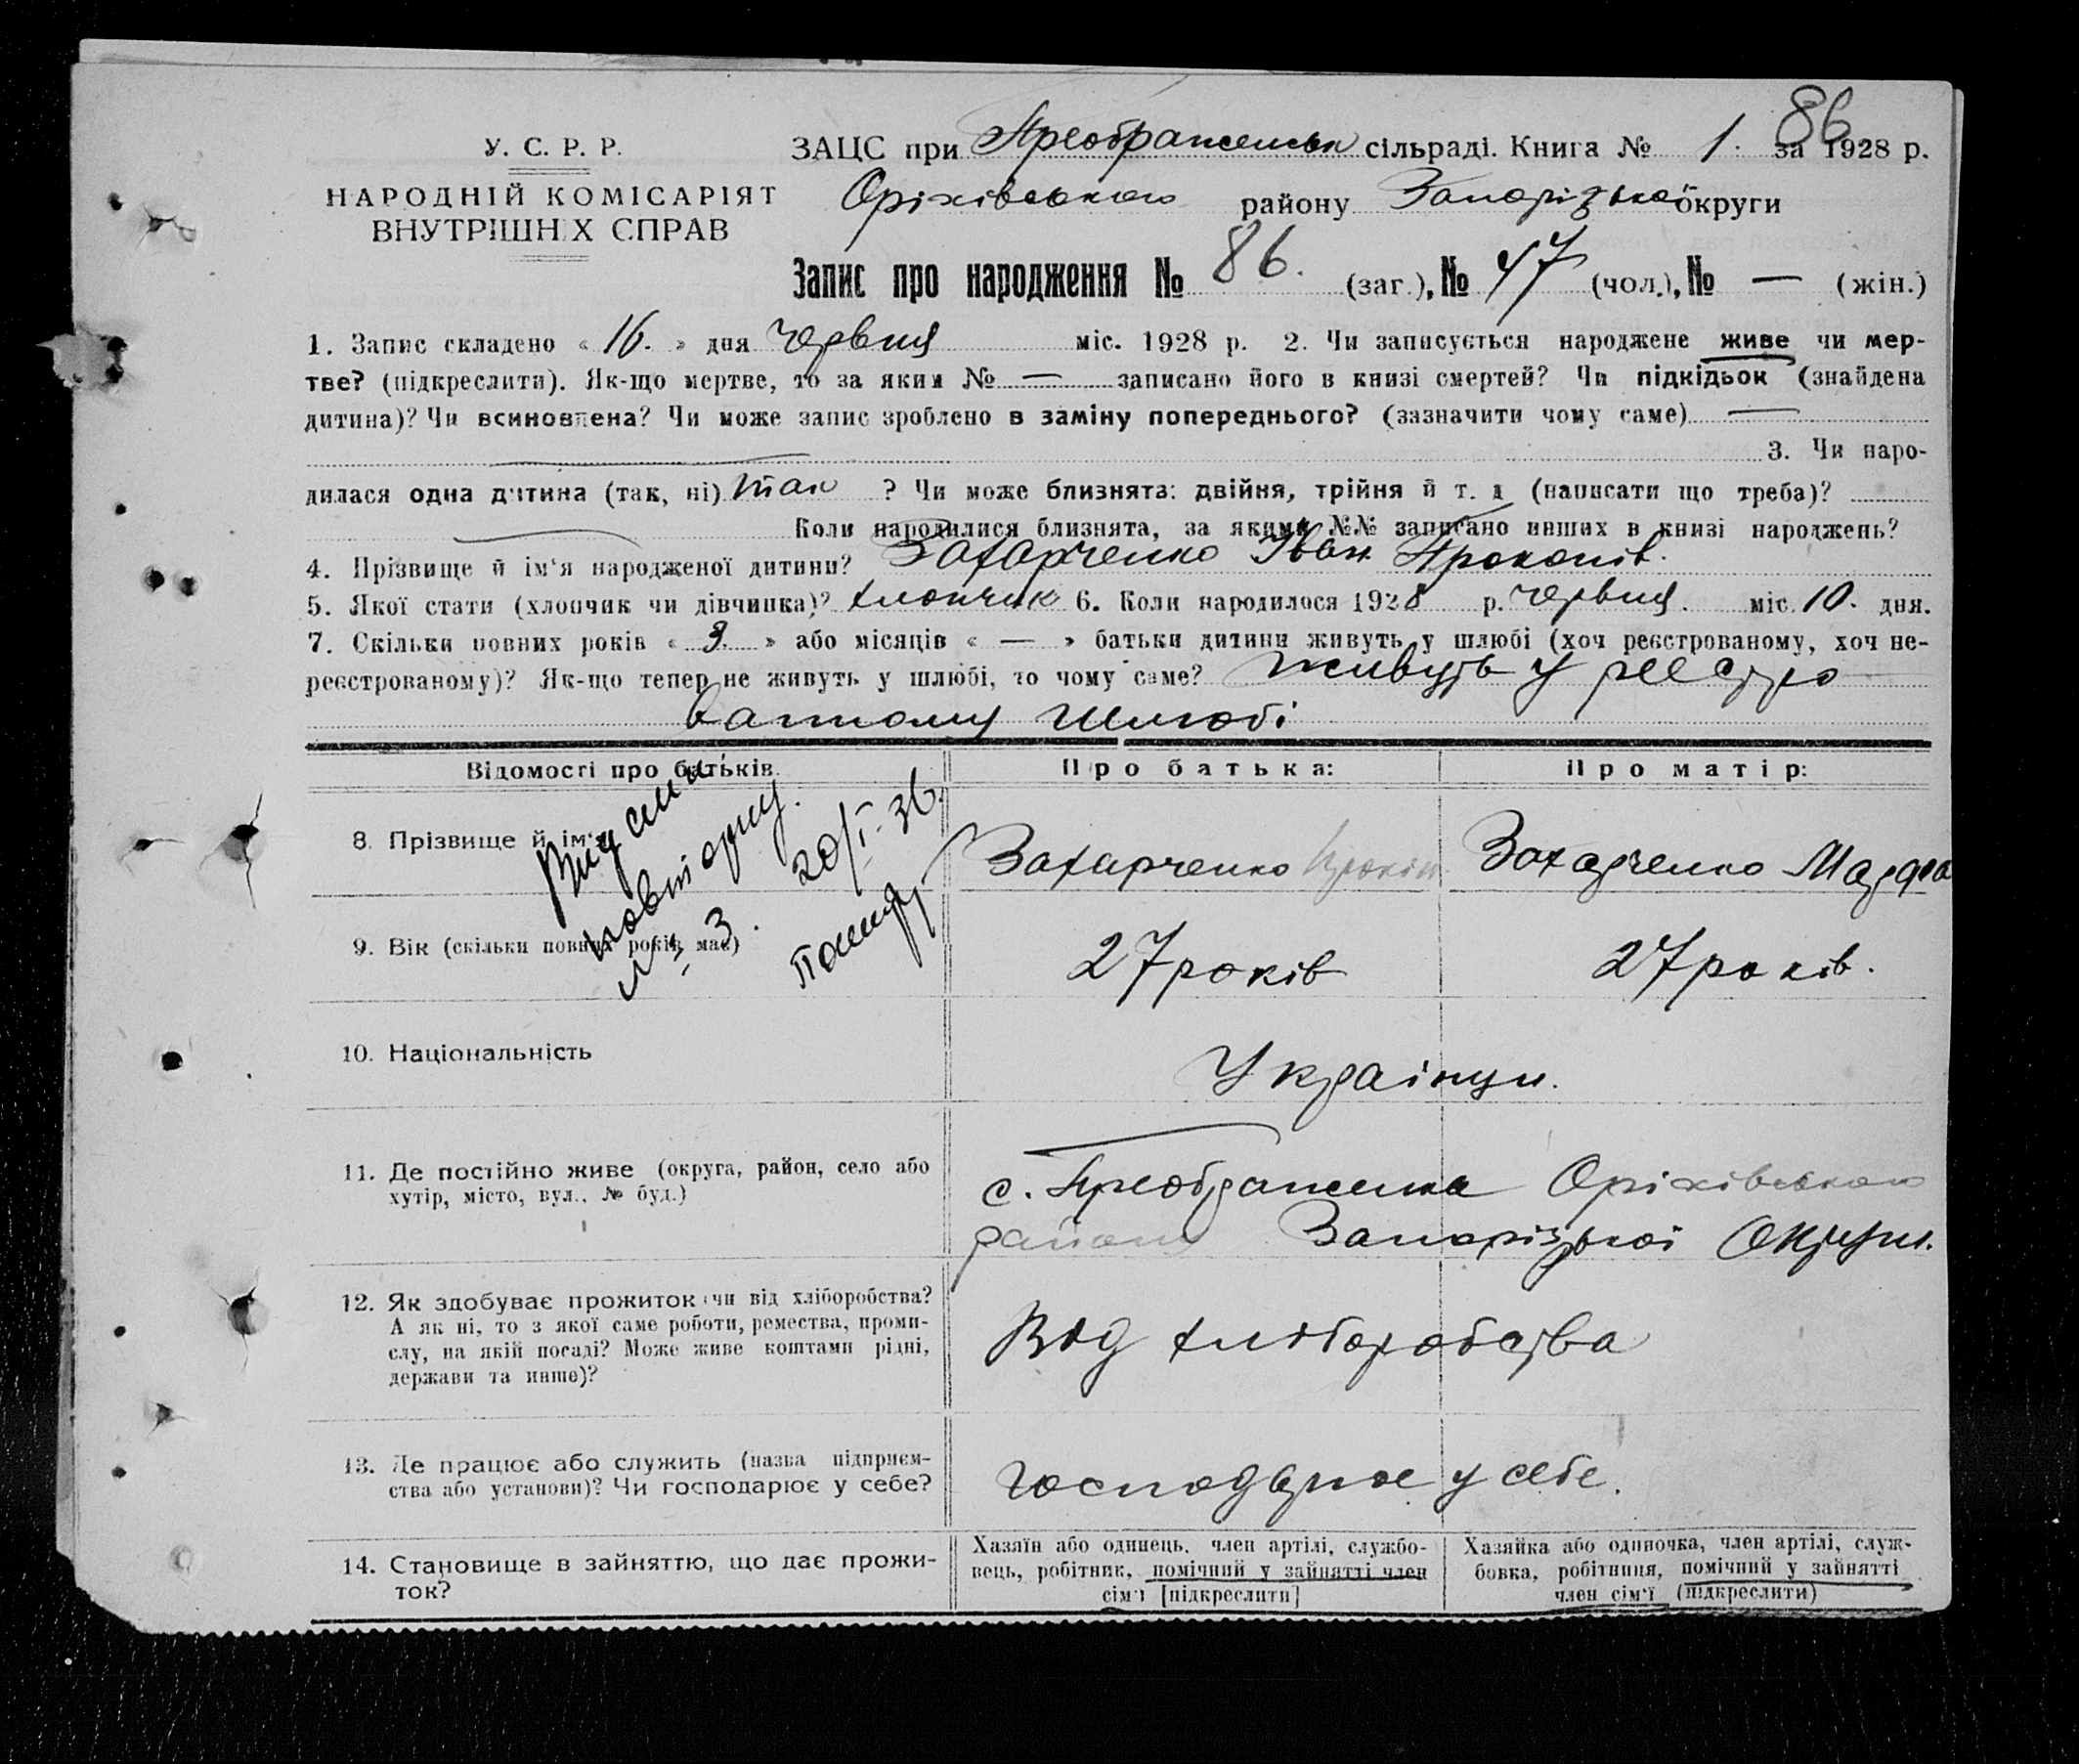 86
У. С. Р. Р.
НАРОДНІЙ КОМІСАРІЯТ
ВНУТРІШНІХ СПРАВ
ЗАЦС при Преображенськ сільраді. Книга № 1. за 1928 р.
Оріхівського району Запорізької округи
Запис про народження № 86. (заг.), № 47 (чол.), № — (жін.)
1. Запис складено « 16. » дня червня міс. 1928 р. 2. Чи записується народжене живе чи мер-
тве? (підкреслити). Як-що мертве, то за яким № — записано його в книзі смертей? Чи підкідьок (знайдена
дитина)? Чи всиновлена? Чи може запис зроблено в заміну попереднього? (зазначити чому саме) —
3. Чи наро-
дилася одна дитина (так, ні) так ? Чи може близнята: двійня, трійня й т. д (написати що треба)?
Коли народилися близнята, за якими №№ записано инших в книзі народжень?
4. Прізвище й ім'я народженої дитини? Захарченко Іван Прокопів.
5. Якої стати (хлопчик чи дівчинка)? хлопчик 6. Коли народилося 1928 р. червня. міс. 10. дня.
7. Скільки повних років « 3. » або місяців « — » батьки дитини живуть у шлюбі (хоч реєстрованому, хоч не-
реєстрованому)? Як-що тепер не живуть у шлюбі, то чому саме? живуть у реєстро
ванному шлюбі
Відомості про батьків. Про батька: Про матір:
8. Прізвище й ім'я Захарченко Прокіп Захарченко Марфа
повторну.
№ 3. 20/I-36.
9. Вік (скільки повних років має) 27 років 27 років.
10. Національність Українци.
11. Де постійно живе (округа, район, село або
хутір, місто, вул., № буд.)
с. Преображенка Оріхівського
району Запорізької Округи.
12. Як здобуває прожиток: чи від хліборобства?
А як ні, то з якої саме роботи, ремества, проми-
слу, на якій посаді? Може живе коштами рідні,
держави та инше)?
Від хліборобства
13. Де працює або служить (назва підприєм-
ства або установи)? Чи господарює у себе?
господарює у себе.
14. Становище в зайняттю, що дає прожи-
ток?
Хазяїн або одинець, член артілі, службо-
вець, робітник, помічний у зайнятті член
сім'ї [підкреслити]
Хазяйка або одиночка, член артілі, служ-
бовка, робітниця, помічний у зайнятті
член сім'ї (підкреслити)